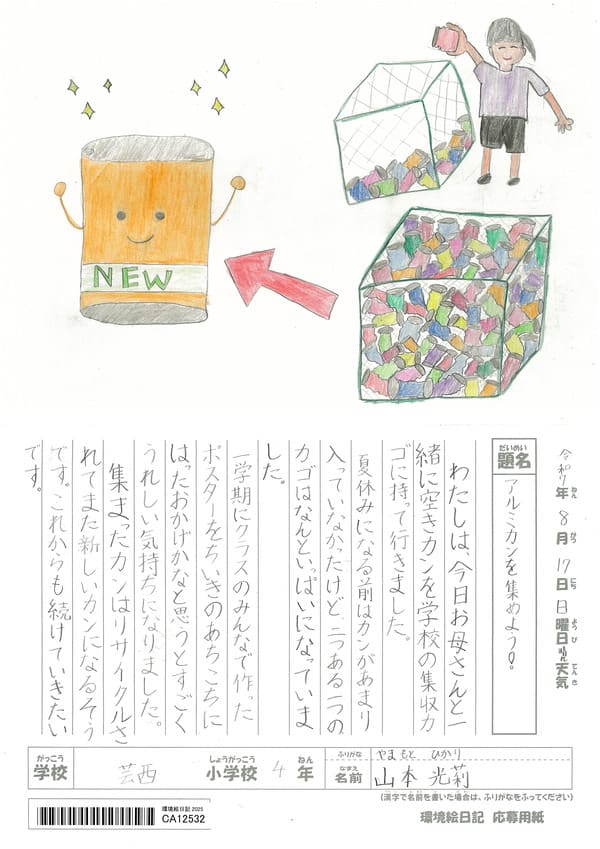 NEW
令和7年8月17日日曜日 天気
ねん
がつ
にち
ようび
てんき
だいめい
題名
アルミカンを集めよう！
わたしは、今日お母さんと一
緒に空きカンを学校の集収カ
ゴに持って行きました。
夏休みになる前はカンがあまり
入っていなかったけど、二つある一つの
カゴはなんといっぱいになっていま
した。
一学期にクラスのみんなで作った
ポスターをちいきのあちこちに
はったおかげかなと思うとすごく
うれしい気持ちになりました。
集まったカンはリサイクルさ
れてまた新しいカンになるそう
です。これからも続けていきたい
です。
がっこう
学校
芸西
しょうがっこう
小学校
4
ねん
年
ふりがな
やまもと ひかり
なまえ
名前
山本 光莉
(漢字で名前を書いた場合は、ふりがなをふってください)
環境絵日記 2025
CA12532
環境絵日記 応募用紙